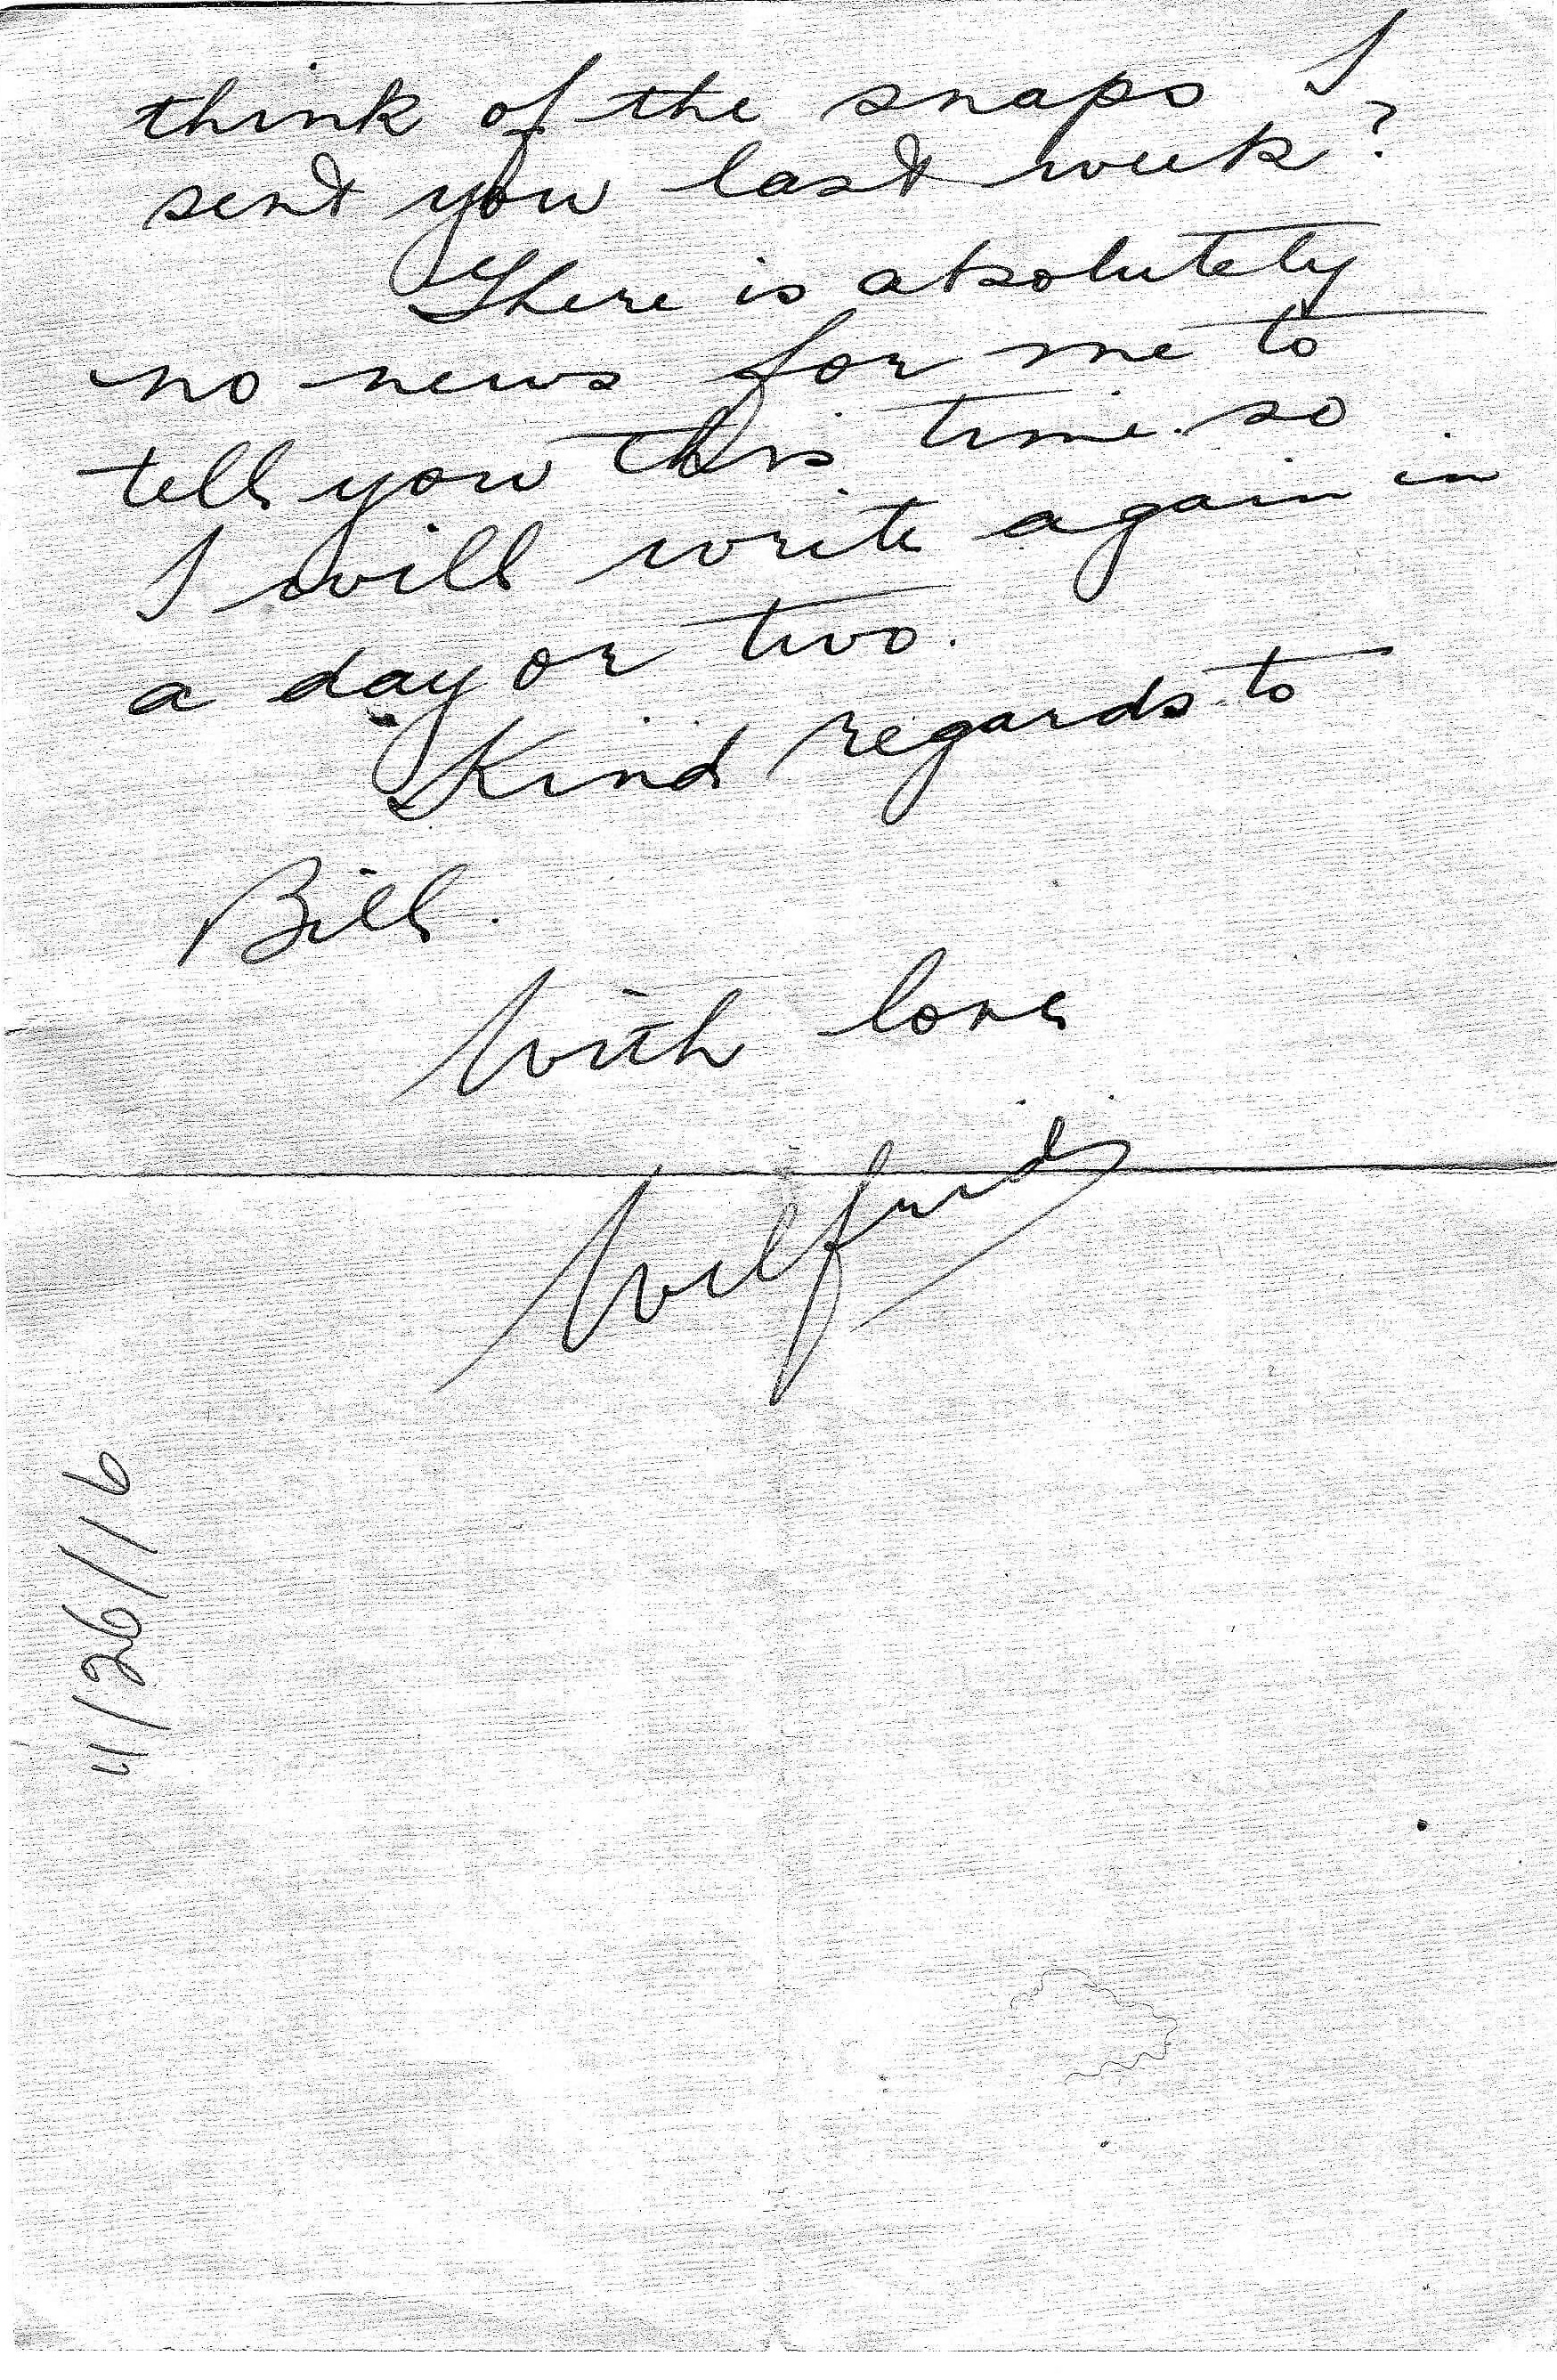 think of the snaps I
sent you last week?
There is absolutely
no news for me to
tell you this time so
I will write again in
a day or two.
Kind regards to
Bill.
With love
Wilfrid
11/26/16